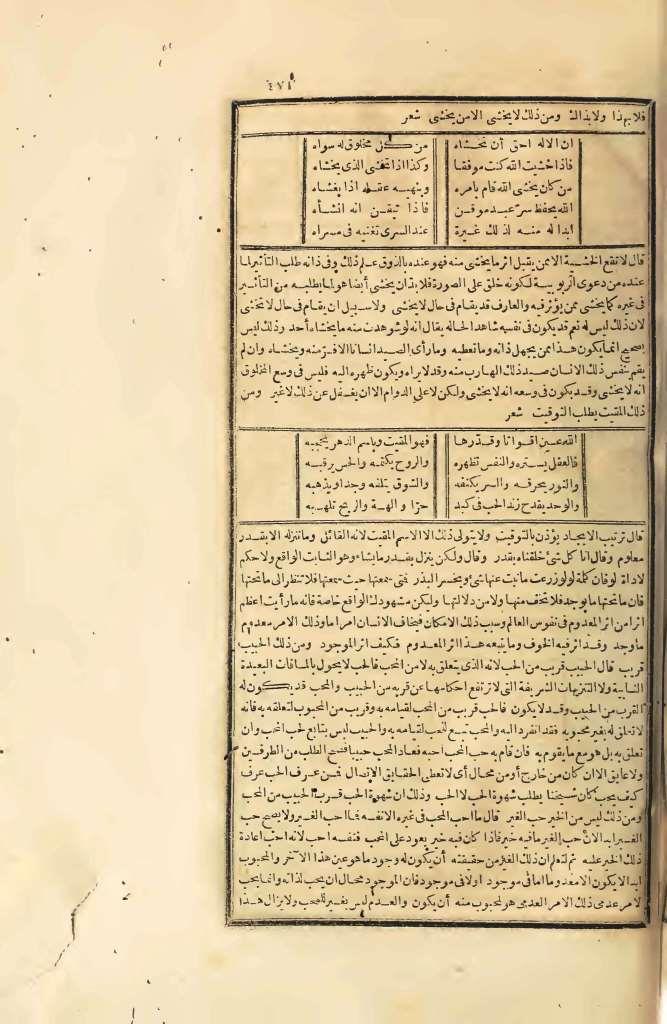 ٤٧١
فلا بهذا ولا بذاك ومن ذلك لا يخشى الا من يخشى شعر
ان الاله احق أن نخشاه من كل مخلوق له سواه
فاذا خشيت الله كنت موفقا وكذا اذا تخشى الذى يخشاه
من كان يخشى الله قام بامره وينهيه عقله اذا يغشاه
الله يحفظ سر عبد موقن فاذا تيقن انه انشأه
ابدا له منه لذلك غيرة عند السرى تغنيه فى مسراه
قال لا تقع الخشية الا ممن يقبل اثر ما يخشى منه فهو عنده بالذوق علم ذلك وفى ذاته طلب التأثير لما
عنده من دعوى الربوبية لكونه خلق على الصورة فلا بد ان يخشى أيضا هو لما يطلبه من التأثير
فى غيره كما يخشى ممن يؤثر فيه والعارف قد يقام فى حال لا يخشى ولا سبيل ان يقام فى حال لا يختشى
لان ذلك ليس له نعم قد يكون فى نفسه شاهد الحالة يقال انه لو شوهدت منه ما يخشاه أحد وذلك ليس
بصحيح انما يكون هذا ممن يجهل ذاته وما تعطيه وما رأى الصيد انسانا الا فر منه ويخشاه وان لم
يقم بنفس ذلك الانسان صيد ذلك الهارب منه وقد لا يراه ويكون ظهره اليه فليس فى وسع المخلوق
انه لا يخشى وقد يكون فى وسعه انه لا يخشى ولكن لا على الدوام الا ان يغفل عن ذلك لا غير ومن
ذلك المقيت يطلب التوقيت شعر
الله عين اقواتا وقدرها فهو المقيت وباسم الدهر يحجبه
فالعقل يستره والنفس تظهره والروح يكتمه والحس يرقبه
والنور يحرقه والسر يكنفه والشوق يتلفه وجدا ويذهبه
والوجد يقدح زند الحب فى كبد حرّا والهة والريح تلهبه
قال ترتيب الايجاد يؤذن بالتوقيت ولا يتولى ذلك الا الاسم المقيت لانه القائل وما ننزله الا بقدر
معلوم وقال انا كل شئ خلقناه بقدر وقال ولكن ينزل بقدر ما يشاء وهو الثابت الواقع ولا حكم
لاداة لو فان كلمة لو لو زرعت ما نبت عنها شئ ويخسر البذر فتى سمعتها حيث سمعتها فلا تنظر الى ما تحتها
فان ما تحتها ما يوجد فلا تخف منها ولا من دلالتها وليكن مشهودك الواقع خاصة فانه ما رأيت اعظم
اثرا من اثر المعدوم فى نفوس العالم وسبب ذلك الامكان فيخاف الانسان امرا ما وذلك الامر معدوم
ما وجد وقد اثر فيه الخوف وما يتبعه هذا اثر المعدوم فكيف اثر الموجود ومن ذلك الحبيب
قريب قال الحبيب قريب من الحب لانه الذى يتعلق به لا من المحب فالحب لا يحول بالمسافات البعيدة
النائية ولا التنزيهات الشريفة التى لا ترتفع احكامها عن قربه من الحبيب والمحب قد يكون له
القرب من الحبيب وقد لا يكون فالحب قريب من المحب لقيامه به وقريب من المحبوب لتعلقه به فانه
لا تعلق له بغير محبوبه فقد انفرد اليه والمحب تبع للحب لقيامه به والحبيب ليس بتابع لحب المحب وان
تعلق به بل هو مع ما يقوم به فان قام به حب المحب احبه فعاد المحب حبيبا فصح الطلب من الطرفين
ولا عايق الا ان كان من خارج أو من محال أى لا تعطى الحقايق الاتصال فمن عرف الحب عرف
كيف يحب كان شيخنا يطلب شهوة الحب لا الحب وذلك ان شهوة الحب قرب الحبيب من المحب
ومن ذلك ليس من الخير حب الغير قال ما احب المحب فى غيره الا نفسه فما احب الغير ولا يصح حب
الغير ابدا لان حب الغير ما فيه خير فاذا كان فيه خير يعود على المحب فنفسه احب لانه احب اعادة
ذلك الخير عليه ثم لتعلم ان ذلك الغير من حقيقته أن يكون له وجود ما هو عين هذا الآخر والمحبوب
ابدا لا يكون الا معدوما اما فى موجود اولا فى موجود فان الموجود محال ان يحب لذاته وانما يحب
لامر عدمى ذلك الامر العدمى هو المحبوب منه أن يكون والعدم ليس بغير للمحب ولا يزال هذا